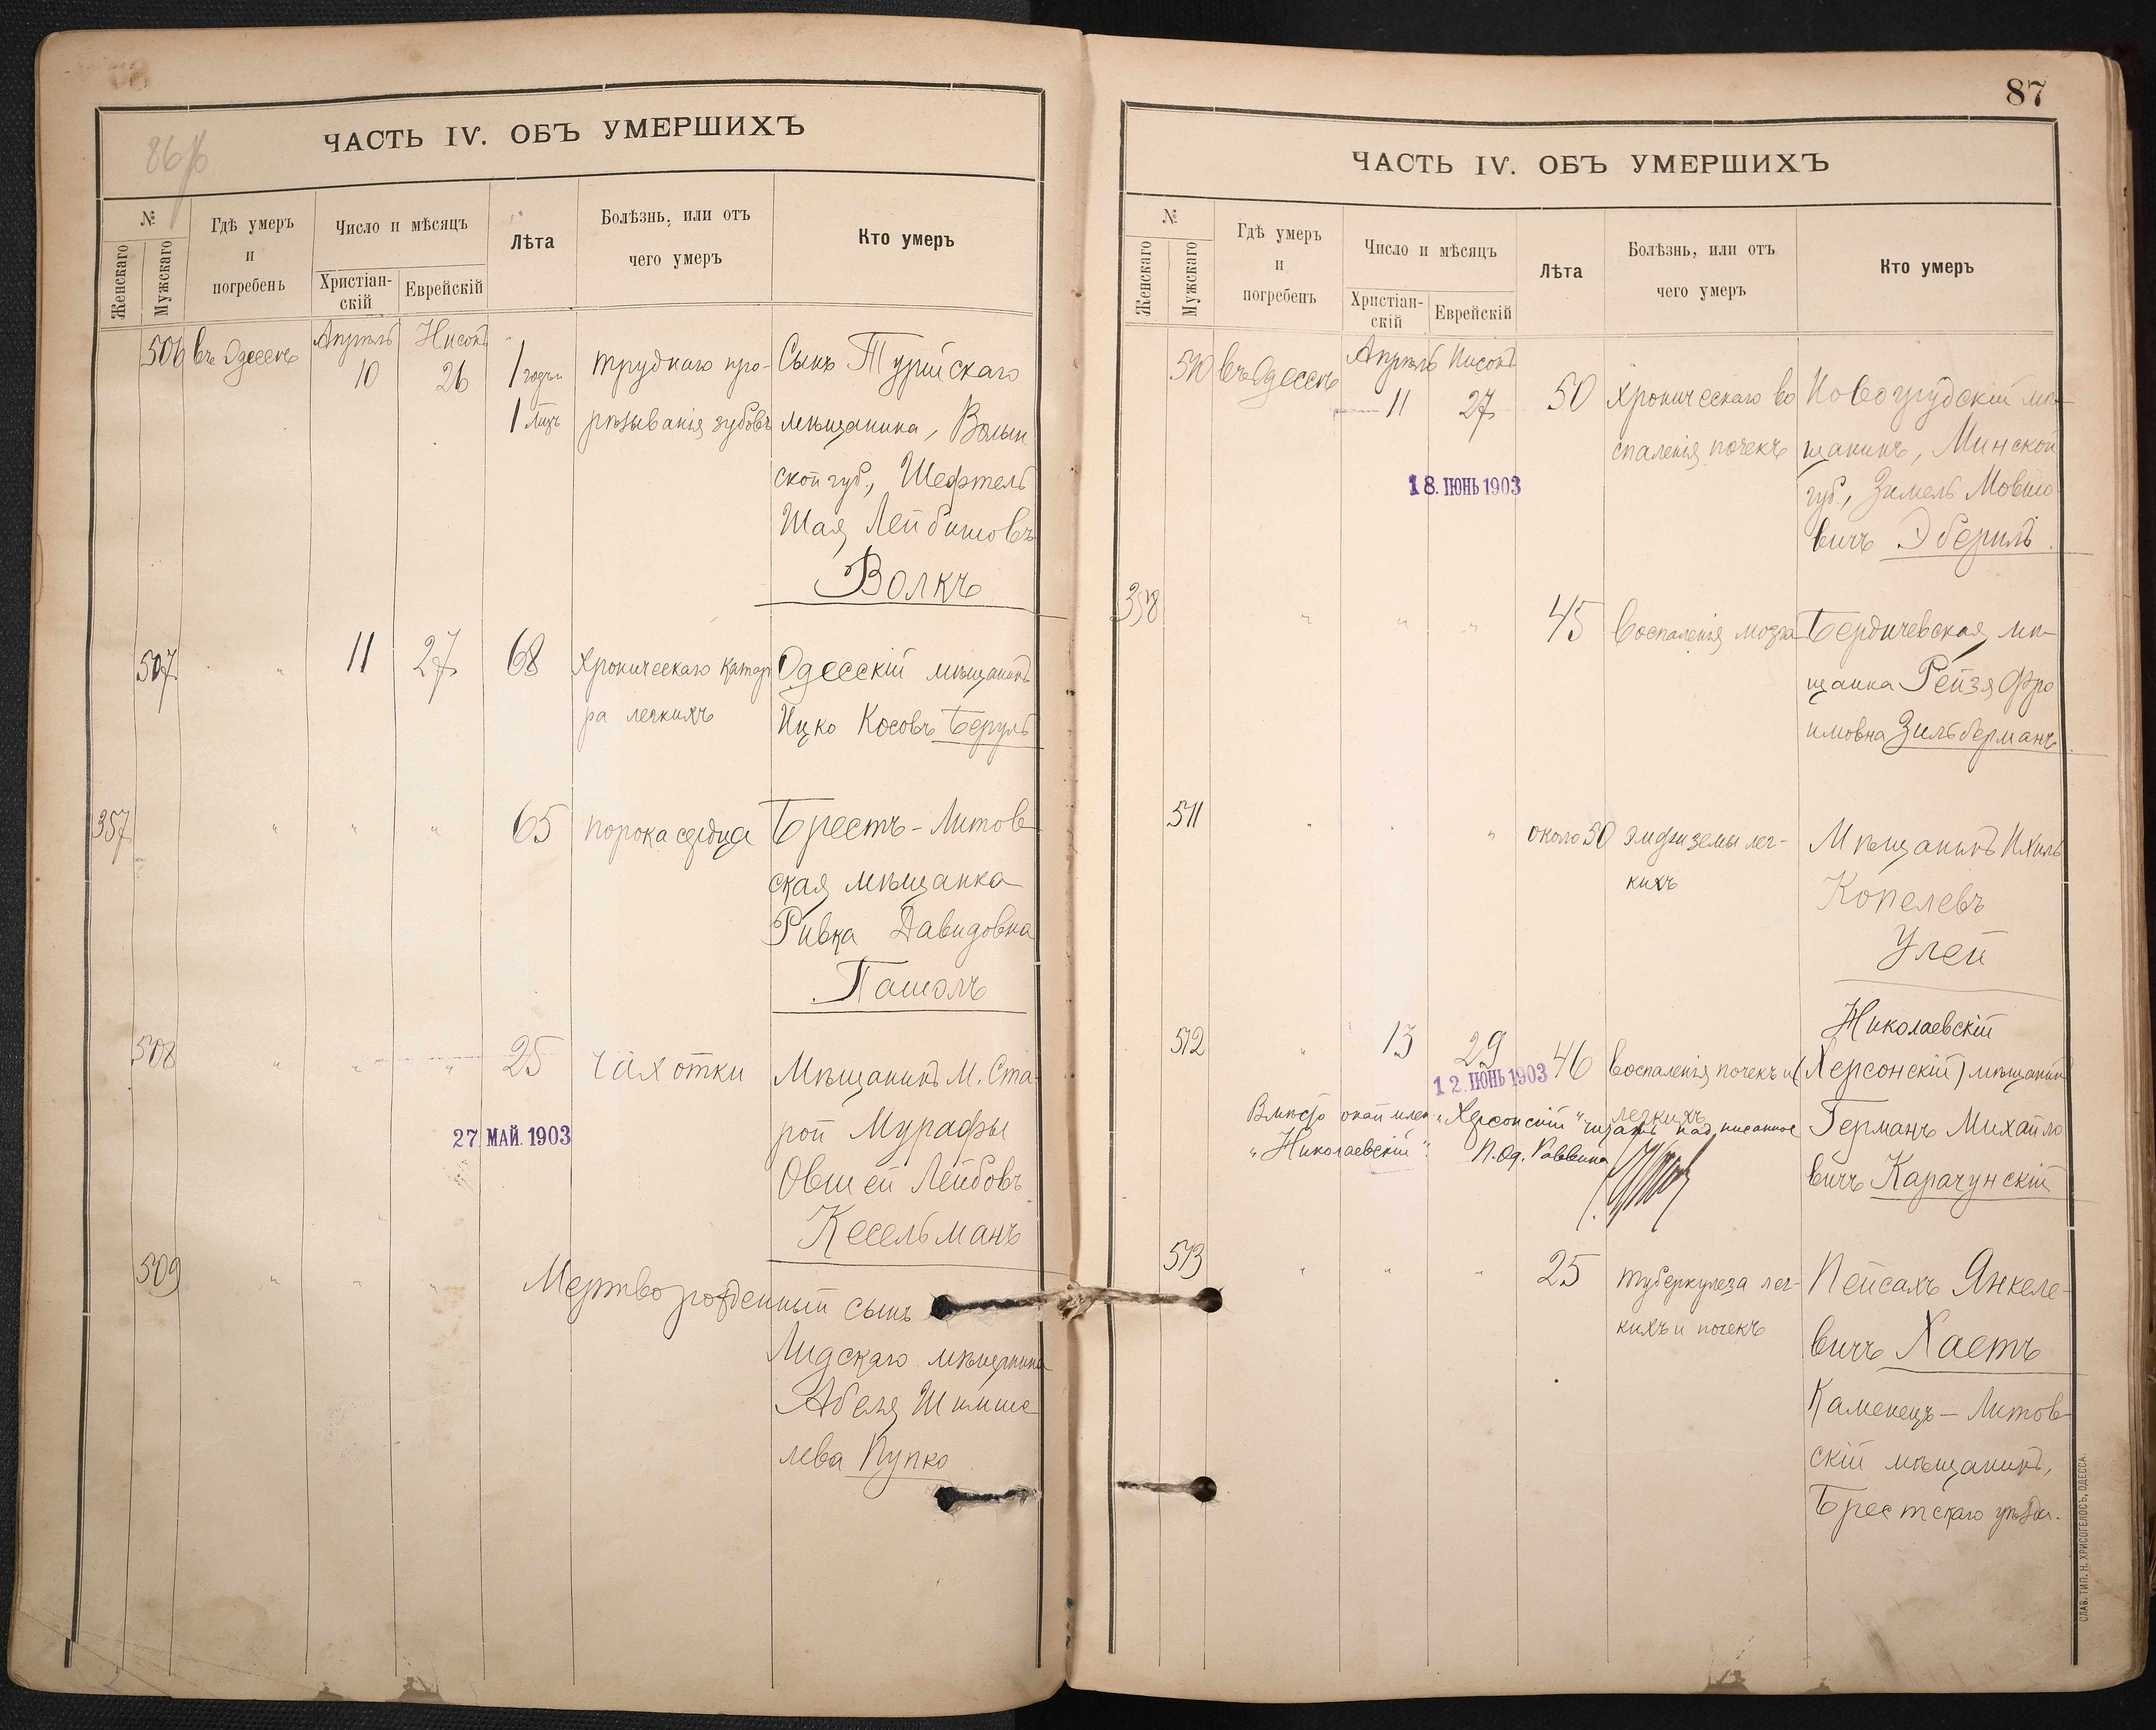 86 об
ЧАСТЬ IV. ОБЪ УМЕРШИХЪ
№
Женскаго
Мужскаго
Гдѣ умеръ
и
погребенъ
Число и мѣсяцъ
Христіан-
скій
Еврейскій
Лѣта
Болѣзнь, или отъ
чего умеръ
Кто умеръ
506
въ Одессѣ
Апрѣль
10
Нисонъ
26
1 годъ
1 мѣс.
труднаго про-
рѣзыванія зубовъ
Сынъ Турійскаго
мѣщанина, Волын
ской губ., Шефтель
Шая Лейбишовъ
Волкъ
507
"
11
27
68
хроническаго катар
ра легкихъ
Одесскій мѣщанинъ
Ицко Косовъ Беруль
357
"
"
"
65
порока сердца
Брестъ-Литов
ская мѣщанка
Ривка Давидовна
Пашолъ
508
"
"
"
25
чахотки
Мѣщанинъ м. Ста-
рой Мурафы
Овшей Лейбовъ
Кесельманъ
27. МАЙ. 1903
509
"
"
"
Мертворожденный сынъ
Лидскаго мѣщанина
Абеля Шимше
лева Пупко
87
ЧАСТЬ IV. ОБЪ УМЕРШИХЪ
№
Женскаго
Мужскаго
Гдѣ умеръ
и
погребенъ
Число и мѣсяцъ
Христіан-
скій
Еврейскій
Лѣта
Болѣзнь, или отъ
чего умеръ
Кто умеръ
510
въ Одессѣ
Апрѣль
11
Нисонъ
27
50
хроническаго во
спаленія почекъ
Новогрудскій мѣ-
щанинъ, Минской
губ., Зимель Мовшо
вичъ Эбериль
18. ІЮНЬ 1903
358
"
"
"
45
воспаленія мозга
Бердичевская мѣ-
щанка Рейзя Фро
имовна Зильберманъ
511
"
"
около 50
эмфиземы лег-
кихъ
Мѣщанинъ Ихиль
Копелевъ
Улей
512
"
13
29
46
воспаленія почекъ и
легкихъ
Николаевскій
(Херсонскій) мѣщанинъ
Германъ Михайло
вичъ Карачунскій
12. ІЮНЬ 1903
"Херсонскій" читать надписанное
"Николаевскій".
И.Од. Раввина
513
"
"
"
25
туберкулеза лег-
кихъ и почекъ
Пейсахъ Янкеле-
вичъ Хаетъ
Каменецъ-Литов-
скій мѣщанинъ,
Брестскаго уѣзда.
СЛАВ. ТИП. Н. ХРИСОГЕЛОСЪ, ОДЕССА.